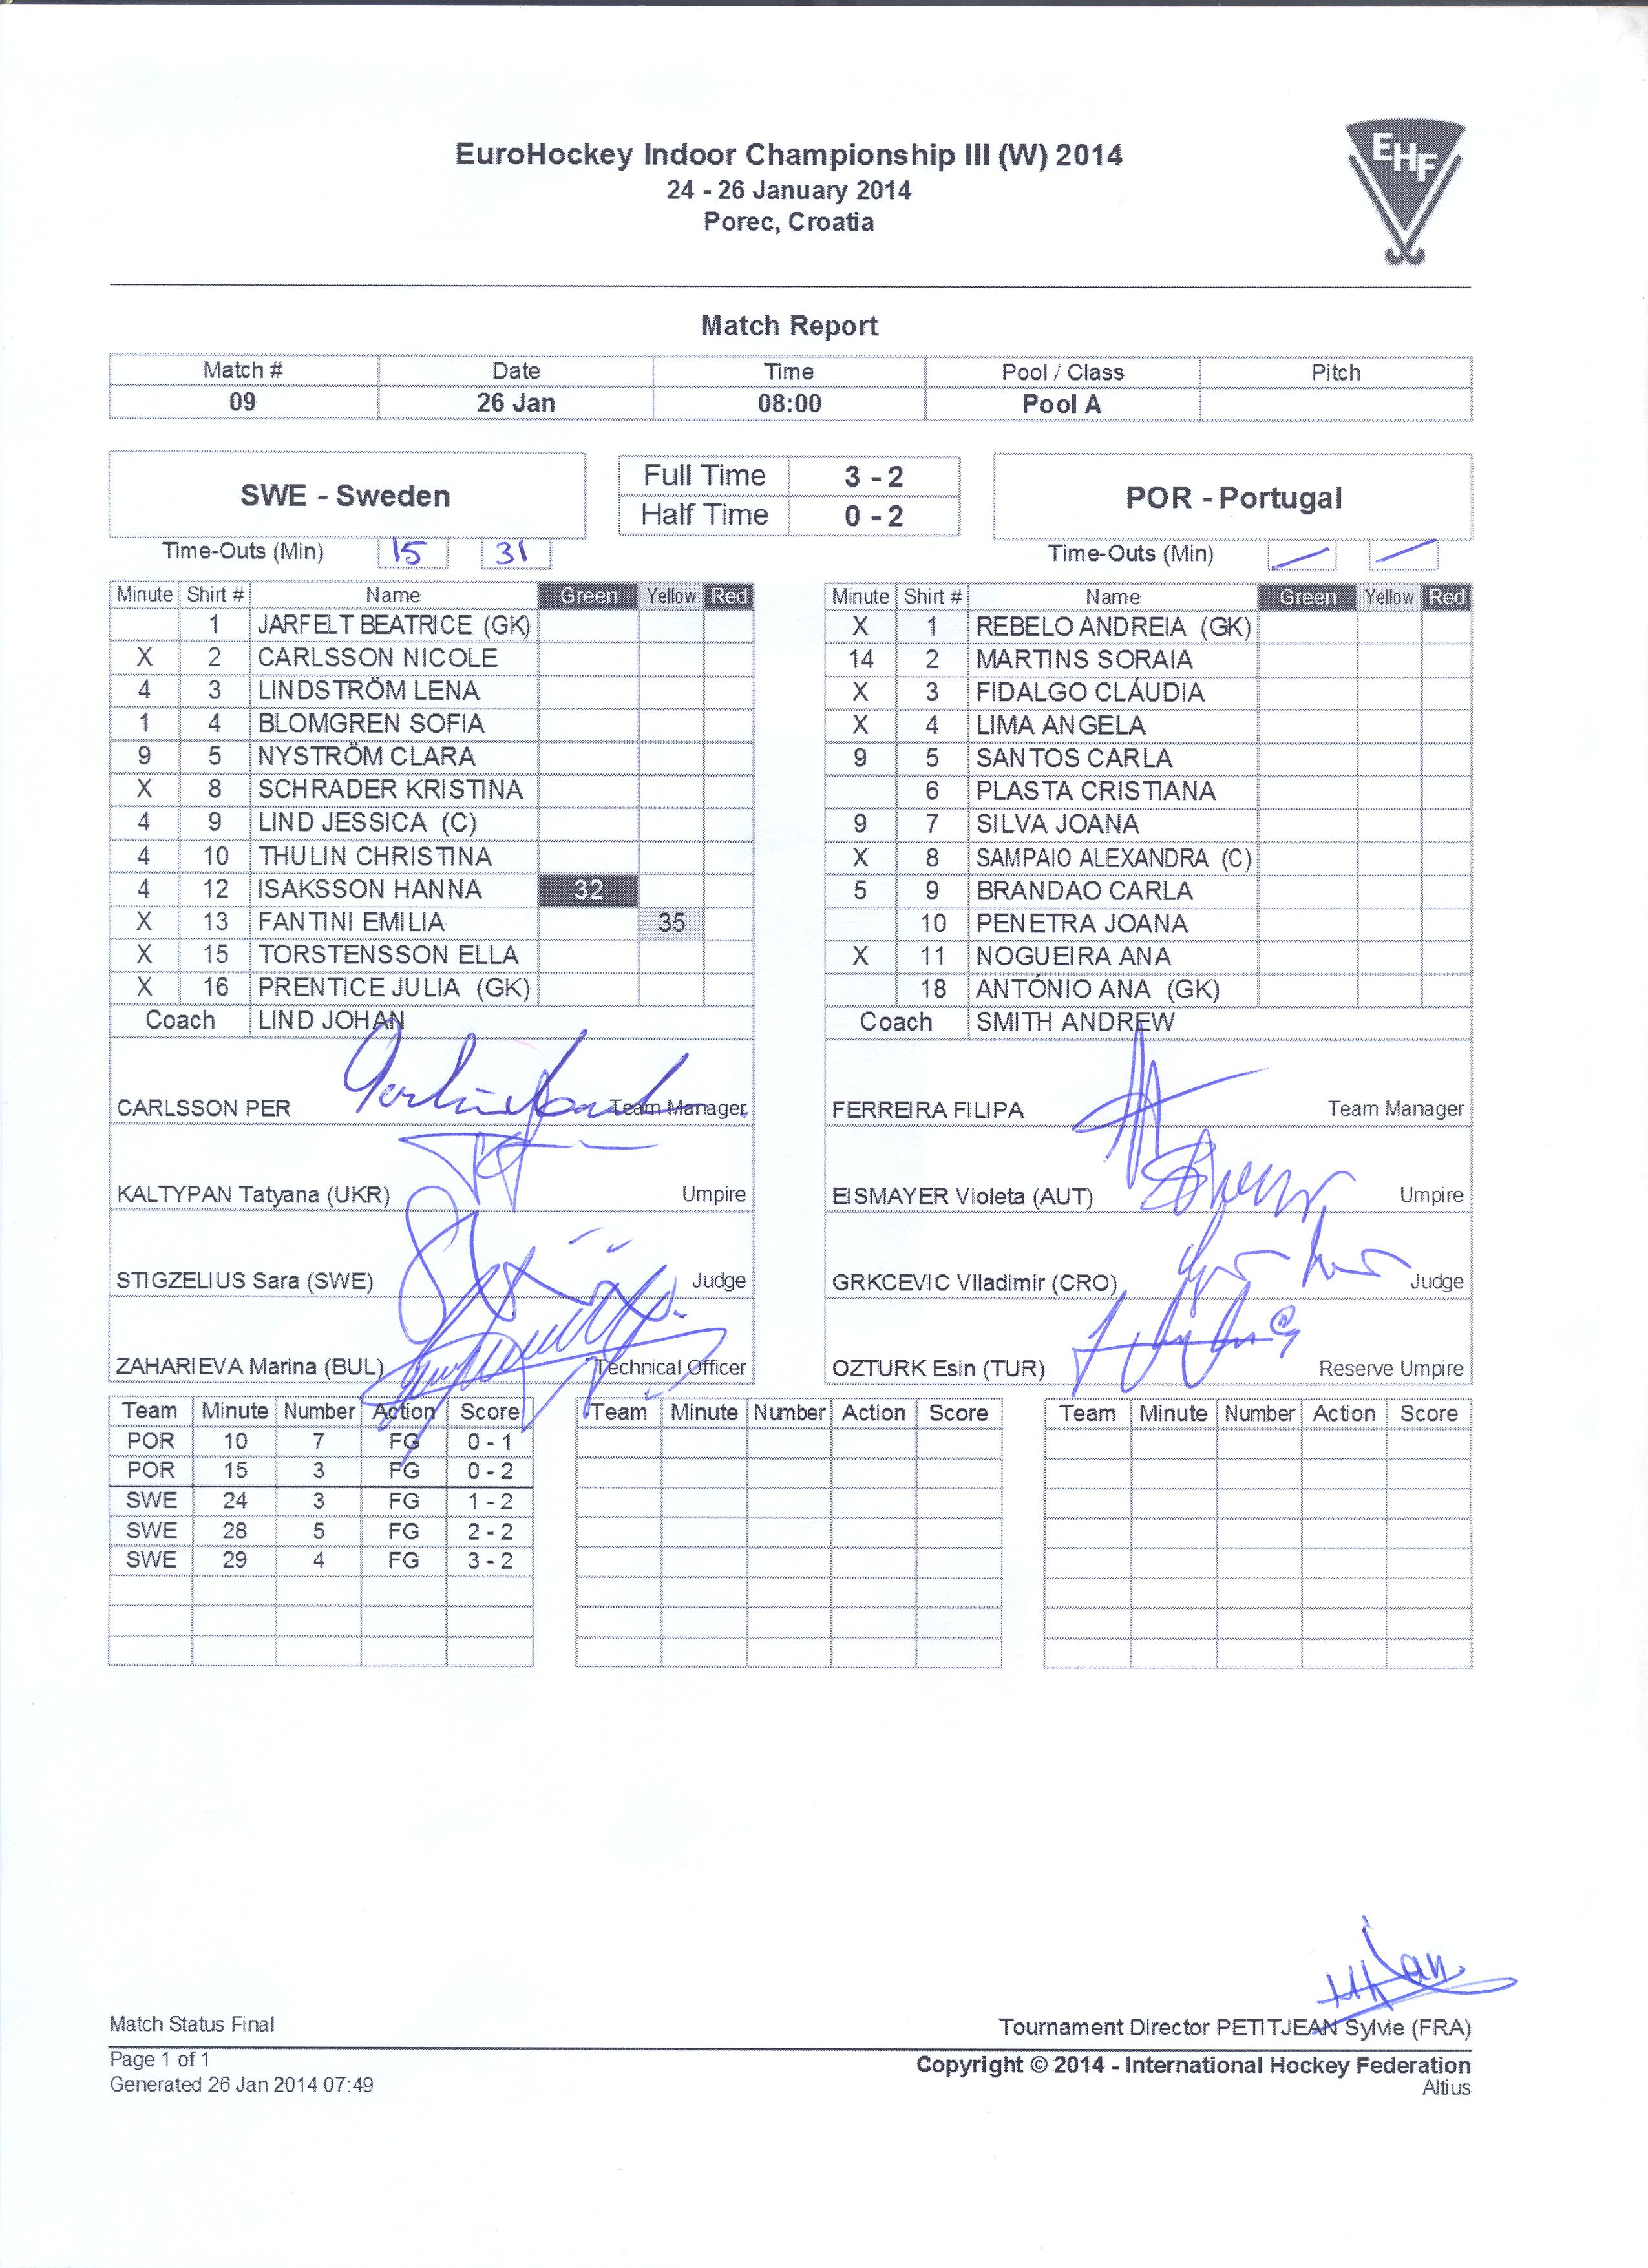 EuroHockey Indoor Championship III (W) 2014
24 - 26 January 2014
Porec, Croatia
EHF
Match Report
Match # Date Time Pool / Class Pitch
09 26 Jan 08:00 Pool A
SWE - Sweden
Full Time 3 - 2
Half Time 0 - 2
POR - Portugal
Time-Outs (Min) 15 31
Time-Outs (Min)
Minute Shirt # Name Green Yellow Red
1 JARFELT BEATRICE (GK)
X 2 CARLSSON NICOLE
4 3 LINDSTRÖM LENA
1 4 BLOMGREN SOFIA
9 5 NYSTRÖM CLARA
X 8 SCHRADER KRISTINA
4 9 LIND JESSICA (C)
4 10 THULIN CHRISTINA
4 12 ISAKSSON HANNA 32
X 13 FANTINI EMILIA 35
X 15 TORSTENSSON ELLA
X 16 PRENTICE JULIA (GK)
Coach LIND JOHAN
CARLSSON PER Team Manager
KALTYPAN Tatyana (UKR) Umpire
STIGZELIUS Sara (SWE) Judge
ZAHARIEVA Marina (BUL) Technical Officer
Minute Shirt # Name Green Yellow Red
X 1 REBELO ANDREIA (GK)
14 2 MARTINS SORAIA
X 3 FIDALGO CLÁUDIA
X 4 LIMA ANGELA
9 5 SANTOS CARLA
6 PLASTA CRISTIANA
9 7 SILVA JOANA
X 8 SAMPAIO ALEXANDRA (C)
5 9 BRANDAO CARLA
10 PENETRA JOANA
X 11 NOGUEIRA ANA
18 ANTÓNIO ANA (GK)
Coach SMITH ANDREW
FERREIRA FILIPA Team Manager
EISMAYER Violeta (AUT) Umpire
GRKCEVIC Vlladimir (CRO) Judge
OZTURK Esin (TUR) Reserve Umpire
Team Minute Number Action Score
POR 10 7 FG 0 - 1
POR 15 3 FG 0 - 2
SWE 24 3 FG 1 - 2
SWE 28 5 FG 2 - 2
SWE 29 4 FG 3 - 2
Team Minute Number Action Score
Team Minute Number Action Score
Match Status Final
Tournament Director PETITJEAN Sylvie (FRA)
Page 1 of 1
Copyright © 2014 - International Hockey Federation
Generated 26 Jan 2014 07:49
Altius